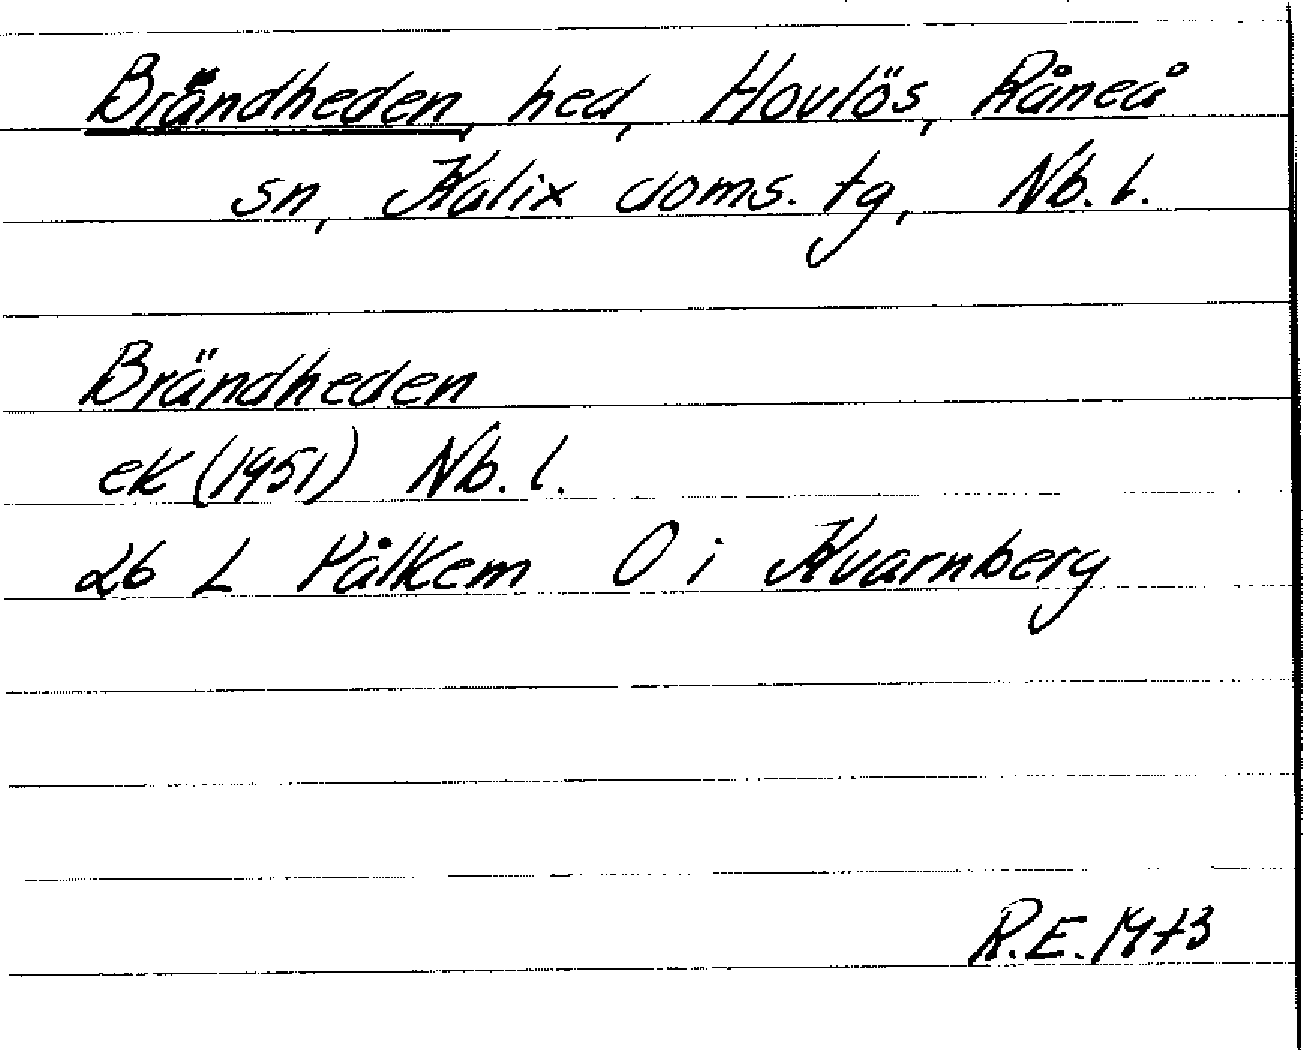 Brändheden, hed, Hovlös, Råneå
sn, Kalix doms. tg, Nb. l.
Brändheden
ek (1951) Nb. l.
26 L Pålkem O i Kvarnberg
R.E. 1973